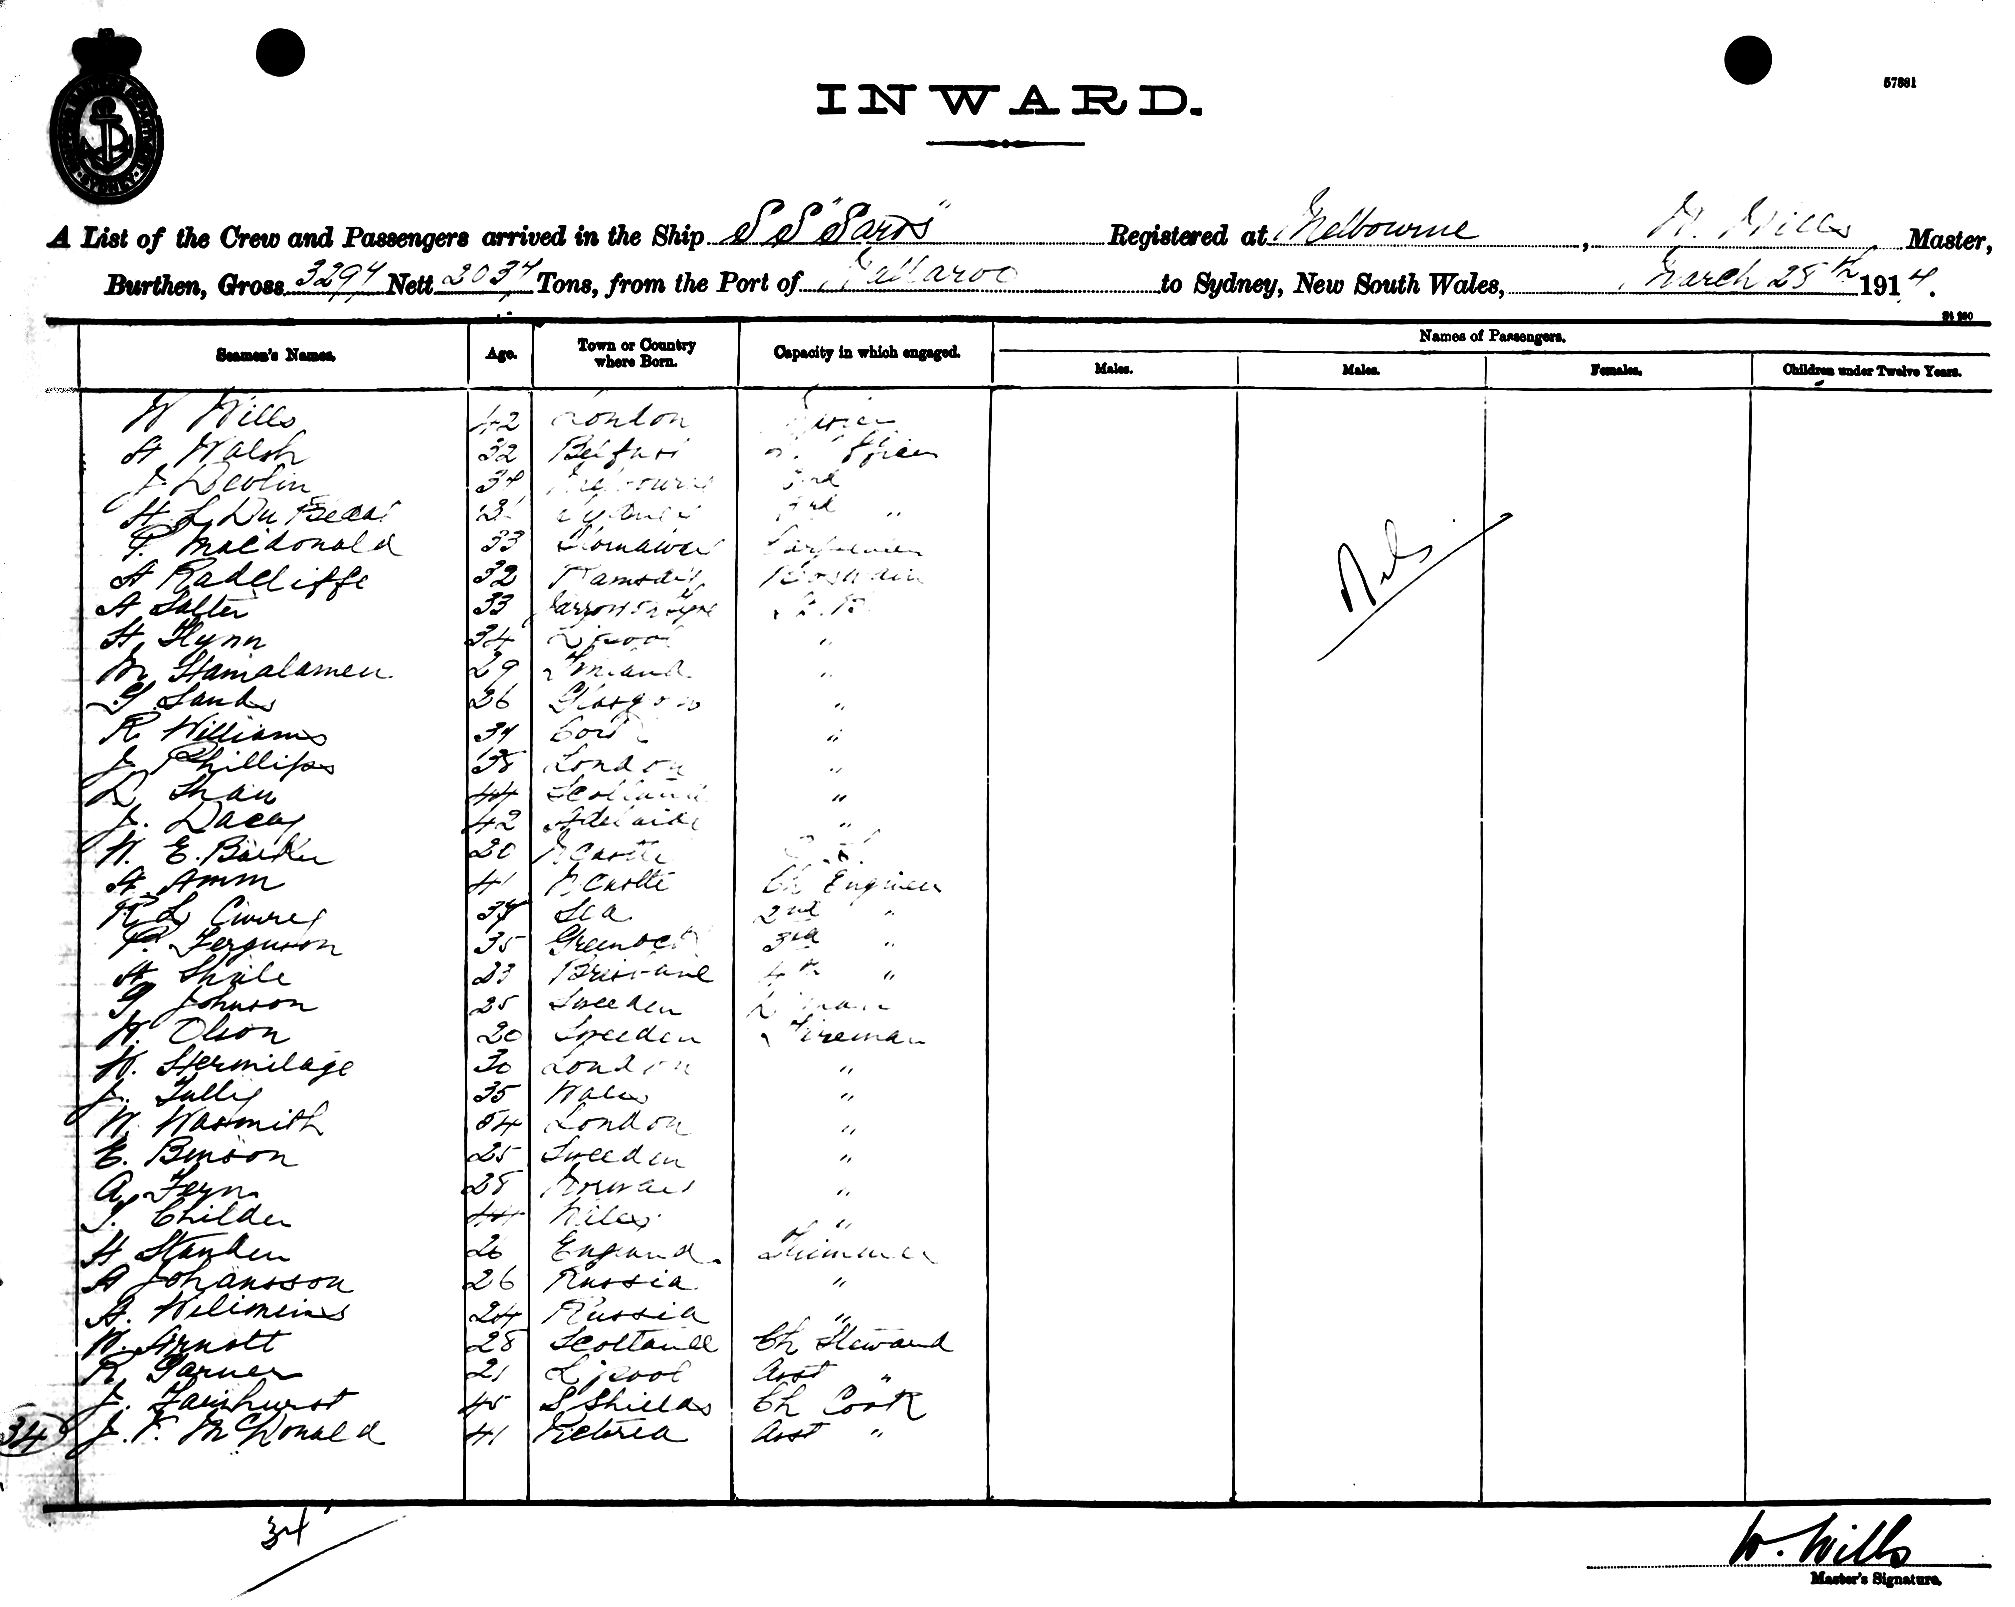 INWARD.
57881
A List of the Crew and Passengers arrived in the Ship S S "Saros" Registered at Melbourne, W. Wills Master,
Burthen, Gross 3294 Nett 2034 Tons, from the Port of Wallaroo to Sydney, New South Wales, March 28th 1914.
Seamen's Names. Age. Town or Country where Born. Capacity in which engaged. Names of Passengers.
Males. Males. Females. Children under Twelve Years.
W Wills 42 London
H Walsh 32 Belfast Officer
J Devlin 34 Melbourne 2nd
H L Du 21 Sydney 3rd "
P. Macdonald 33 Carpenter
A Radcliffe 32 Ramsay Boswain
A Salter 33 Jarrow on Tyne A.B.
H Flynn 34 L'pool "
M 29 Finland "
G Sands 26 Glasgow "
R Williams 34 "
J Phillips 38 London "
D Shaw 44 Scotland "
J. Dacey 42 Adelaide "
W. E. Barker 20 N Castle
A. Amm 41 N Castle Ch Engineer
R L 37 Sea 2nd "
P. Ferguson 35 Greenock 3rd "
A 23 Brisbane 4th "
G Johnson 25 Sweeden
W. Olson 20 Sweeden Fireman
W. Hermilage 30 London "
J. Tully 35 Wales "
W. Wasmith 54 London "
E. Benson 25 Sweeden "
A. Fern 28 Norway "
T. Childer 44 "
H Standen 26 England. Trimmer
A Johansson 26 Russia "
A. 24 Russia "
W. Arnott 28 Scotland Ch Steward
R Garner 21 L'pool Asst "
J. Fairhurst 45 S Shields Ch Cook
34 J. F. McDonald 41 Victoria Asst "
Nil
34
W. Wills
Master's Signature.